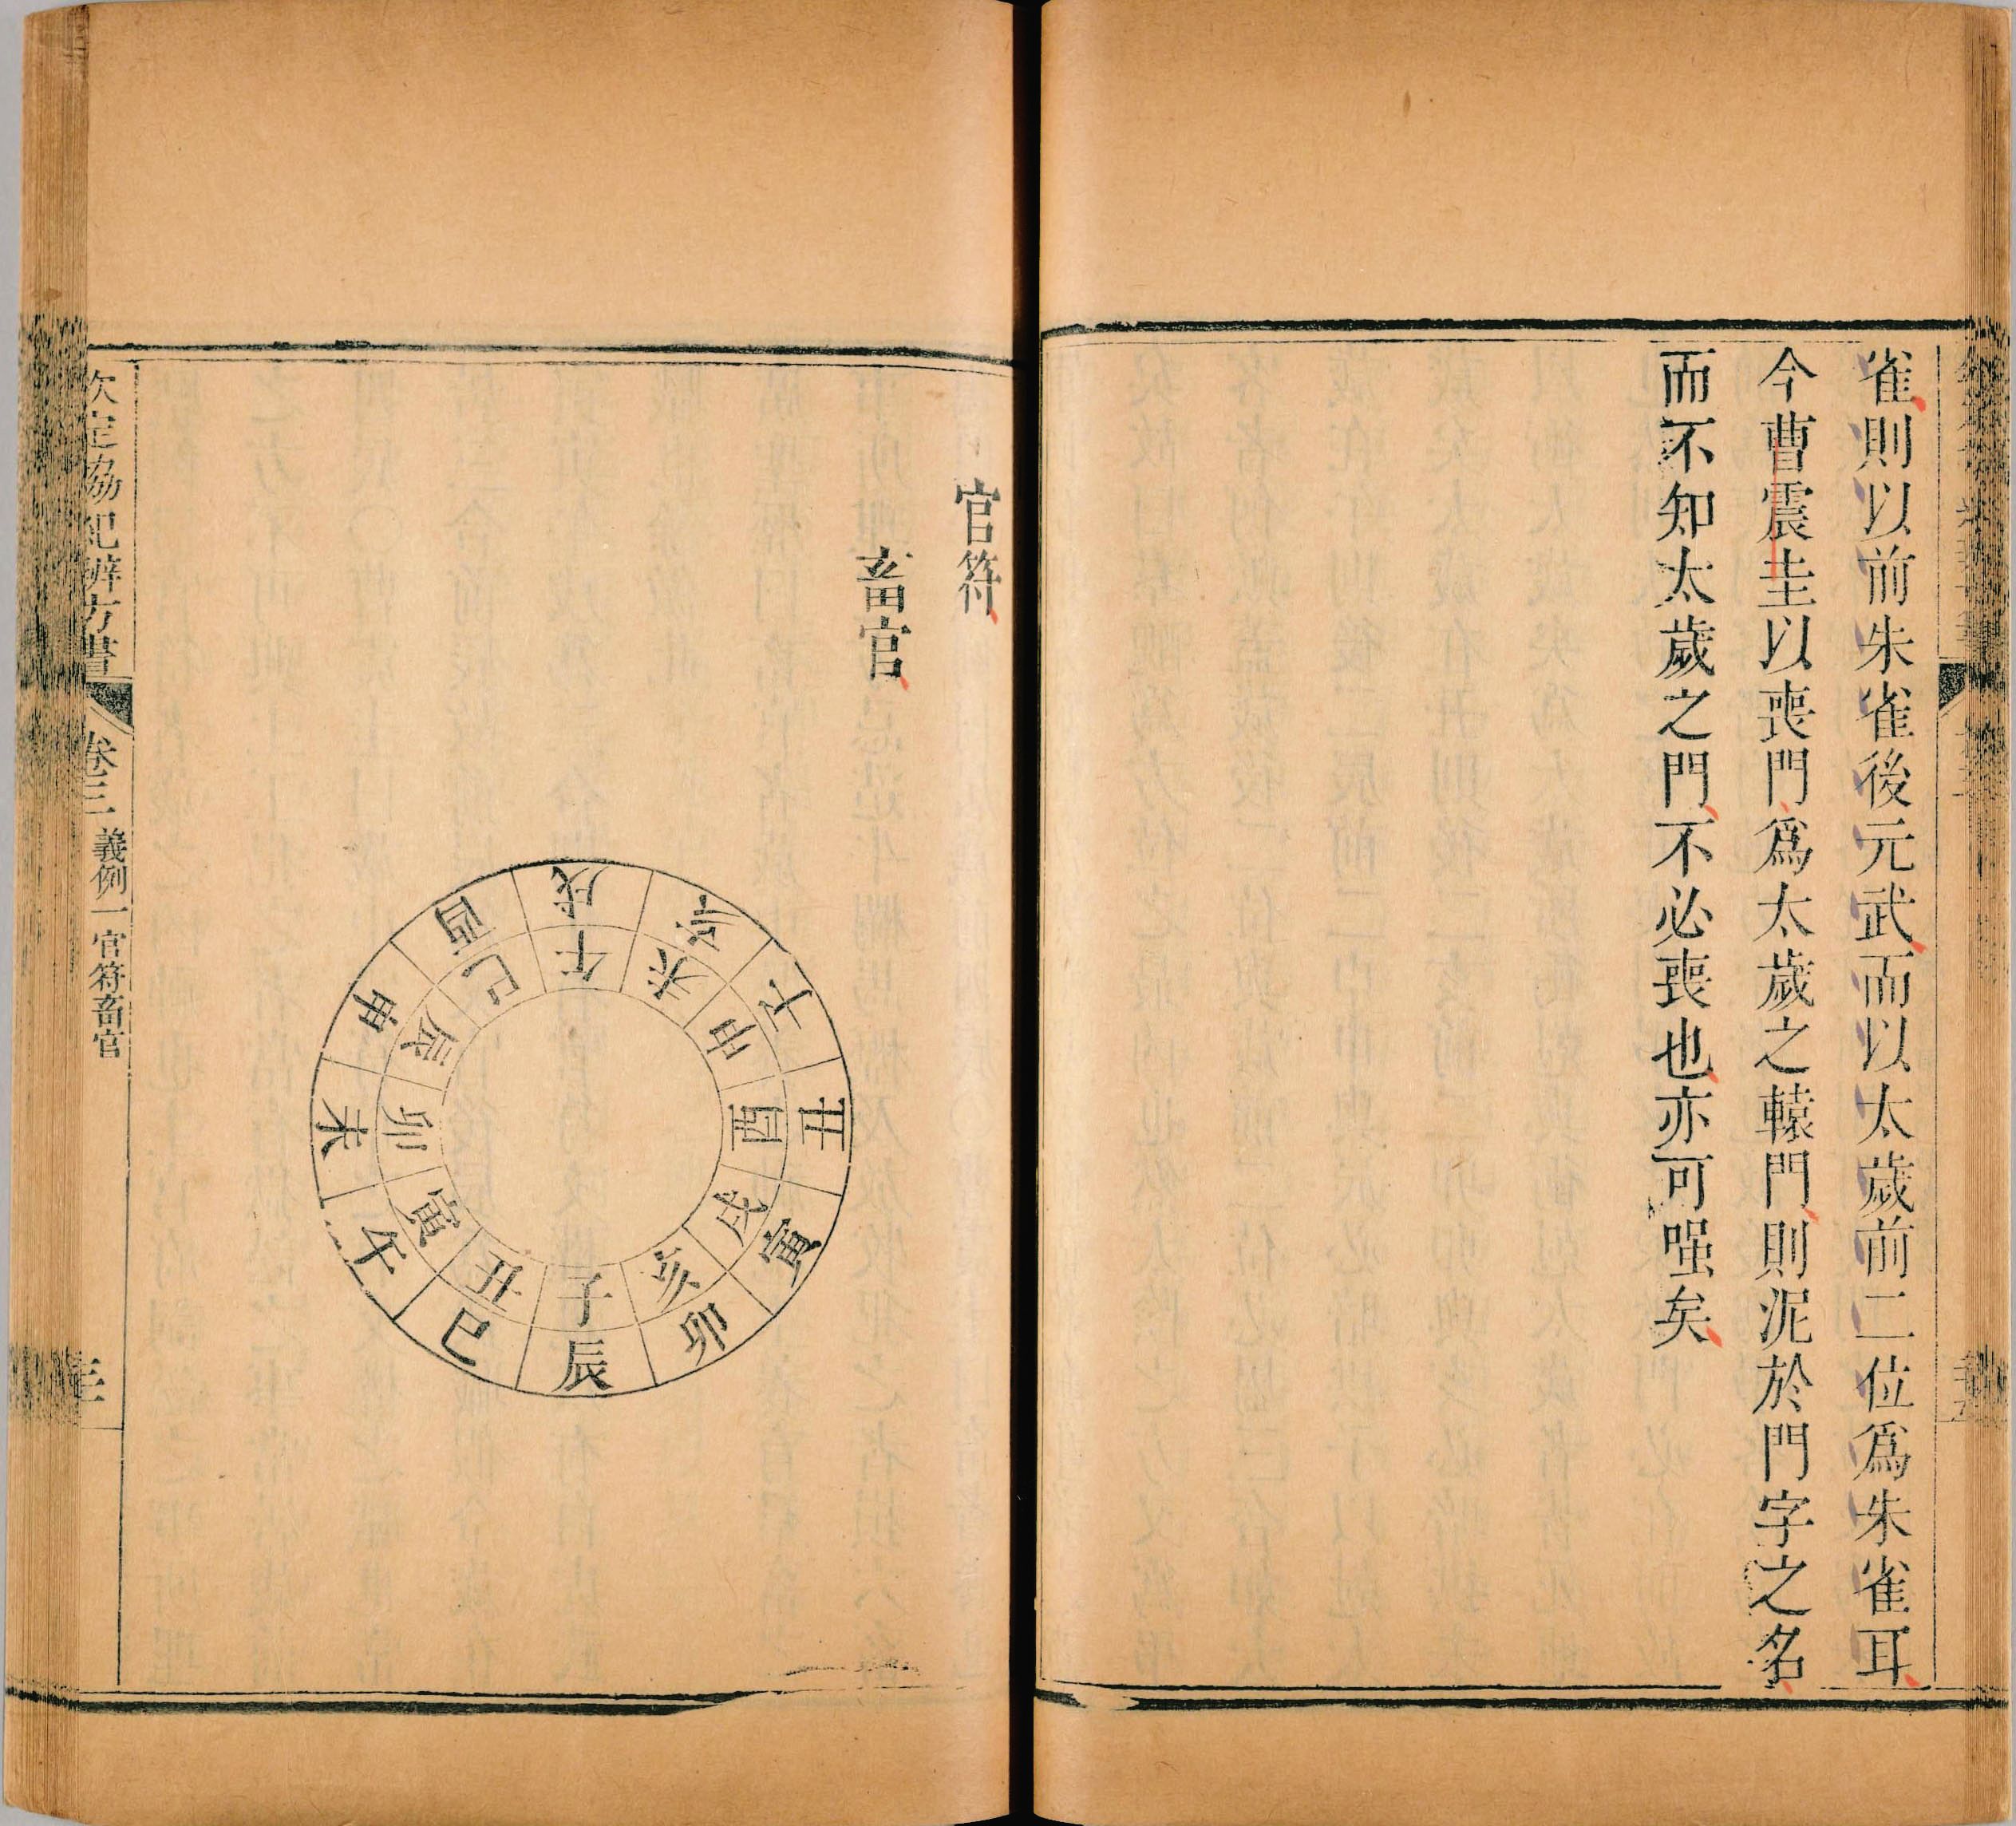 雀則以前朱雀後元武而以太歲前二位爲朱雀耳
今曹震圭以喪門爲太歲之轅門則泥於門字之名
而不知太歲之門不必喪也亦可哂矣
官符
畜官
戌亥子丑寅卯辰巳午未申酉
午未申酉戌亥子丑寅卯辰巳
欽定協紀辨方書
卷三
義例一官符畜官